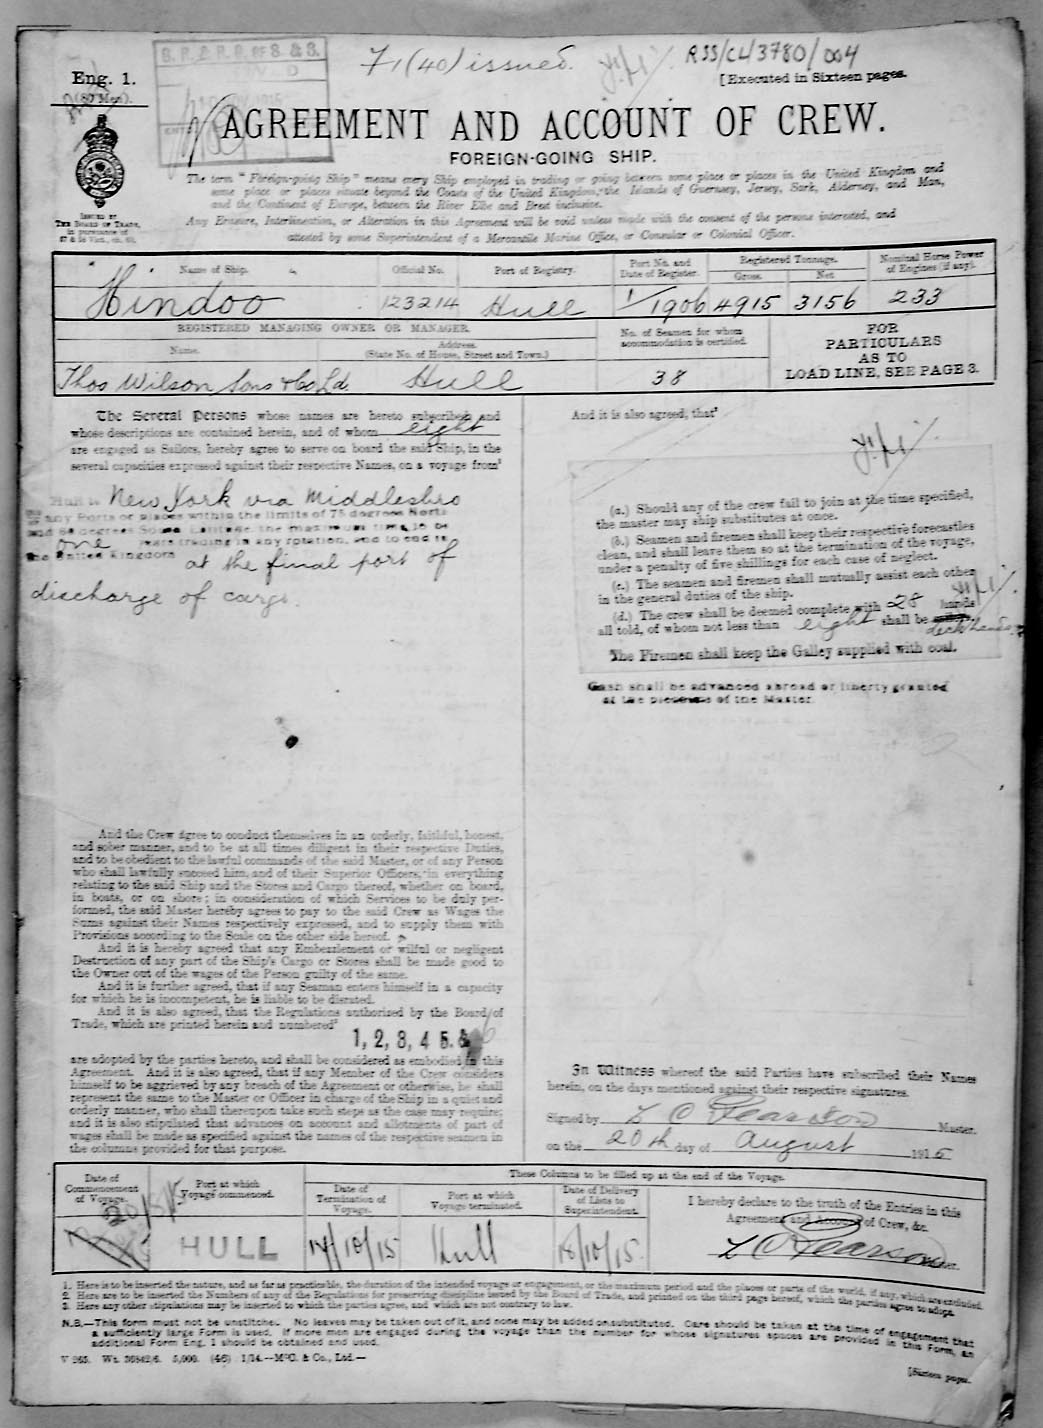 71(40) issued.
RSS/CL/3780/004
Eng. 1.
(80 Men).
[Executed in Sixteen pages.
AGREEMENT AND ACCOUNT OF CREW.
FOREIGN-GOING SHIP.
ISSUED BY
THE BOARD OF TRADE,
in pursuance of
The term "Foreign-going Ship" means every Ship employed in trading or going between some place or places in the United Kingdom and
some place or places situate beyond the Coasts of the United Kingdom, the Islands of Guernsey, Jersey, Sark, Alderney, and Man,
and the Continent of Europe, between the River Elbe and Brest inclusive.
Any Erasure, Interlineation, or Alteration in this Agreement will be void unless made with the consent of the persons interested, and
attested by some Superintendent of a Mercantile Marine Office, or Consular or Colonial Officer.
Name of Ship. Official No. Port of Registry. Port No. and Date of Register. Registered Tonnage. Gross. Net. Nominal Horse Power of Engines (if any).
Hindoo 123214 Hull 1/1906 4915 3156 233
REGISTERED MANAGING OWNER OR MANAGER
Name. Address. (State No. of House, Street and Town.)
No. of Seamen for whom accommodation is certified.
FOR
PARTICULARS
AS TO
LOAD LINE, SEE PAGE 3.
Thos Wilson Sons & Co Ld. Hull 38
The Several Persons whose names are hereto subscribed, and
whose descriptions are contained herein, and of whom eight
are engaged as Sailors, hereby agree to serve on board the said Ship, in the
several capacities expressed against their respective Names, on a voyage from¹
Hull to New York via Middlesbro
any Ports or places within the limits of 75 degrees North
and 60 degrees South Latitude, the maximum time to be
one years trading in any rotation, and to end in
the United Kingdom at the final port of
discharge of cargo.
And the Crew agree to conduct themselves in an orderly, faithful, honest,
and sober manner, and to be at all times diligent in their respective Duties,
and to be obedient to the lawful commands of the said Master, or of any Person
who shall lawfully succeed him, and of their Superior Officers, in everything
relating to the said Ship and the Stores and Cargo thereof, whether on board,
in boats, or on shore; in consideration of which Services to be duly per-
formed, the said Master hereby agrees to pay to the said Crew as Wages the
Sums against their Names respectively expressed, and to supply them with
Provisions according to the Scale on the other side hereof.
And it is hereby agreed that any Embezzlement or wilful or negligent
Destruction of any part of the Ship's Cargo or Stores shall be made good to
the Owner out of the wages of the Person guilty of the same.
And it is further agreed, that if any Seaman enters himself in a capacity
for which he is incompetent, he is liable to be disrated.
And it is also agreed, that the Regulations authorized by the Board of
Trade, which are printed herein and numbered²
1, 2, 3, 4 5. 6
are adopted by the parties hereto, and shall be considered as embodied in this
Agreement. And it is also agreed, that if any Member of the Crew considers
himself to be aggrieved by any breach of the Agreement or otherwise, he shall
represent the same to the Master or Officer in charge of the Ship in a quiet and
orderly manner, who shall thereupon take such steps as the case may require;
and it is also stipulated that advances on account and allotments of part of
wages shall be made as specified against the names of the respective seamen in
the columns provided for that purpose.
And it is also agreed, that³
(a.) Should any of the crew fail to join at the time specified,
the master may ship substitutes at once.
(b.) Seamen and firemen shall keep their respective forecastles
clean, and shall leave them so at the termination of the voyage,
under a penalty of five shillings for each case of neglect.
(c.) The seamen and firemen shall mutually assist each other
in the general duties of the ship.
(d.) The crew shall be deemed complete with 28 hands
all told, of whom not less than eight shall be
deck hands
The Firemen shall keep the Galley supplied with coal.
Cash shall be advanced abroad or liberty granted
at the pleasure of the Master.
In Witness whereof the said Parties have subscribed their Names
herein, on the days mentioned against their respective signatures.
Signed by Z C Pearson Master.
on the 20th day of August 1915
Date of Commencement of Voyage. Port at which Voyage commenced.
These Columns to be filled up at the end of the Voyage.
Date of Termination of Voyage. Port at which Voyage terminated. Date of Delivery of Lists to Superintendent.
I hereby declare to the truth of the Entries in this
Agreement and Account of Crew, &c.
20/8/15 HULL 18/10/15 Hull 18/10/15 Z C Pearson
1. Here is to be inserted the nature, and as far as practicable, the duration of the intended voyage or engagement, or the maximum period and the places or parts of the world, if any, which are excluded.
2. Here are to be inserted the Numbers of any of the Regulations for preserving discipline issued by the Board of Trade, and printed on the third page hereof, which the parties agree to adopt.
3. Here any other stipulations may be inserted to which the parties agree, and which are not contrary to law.
N.B.—This form must not be unstitched. No leaves may be taken out of it, and none may be added or substituted. Care should be taken at the time of engagement that
a sufficiently large Form is used. If more men are engaged during the voyage than the number for whose signatures spaces are provided in this Form, an
additional Form Eng. 1 should be obtained and used.
[Sixteen pages.